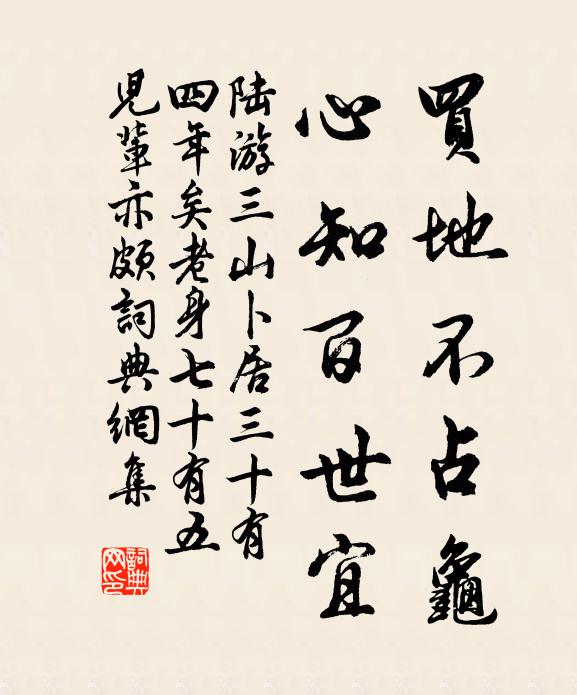 買地不占龜
心知百世宜
陆游三山卜居三十有
四年矣老身七十有五
児輩亦頗詞典網集
詞典网印